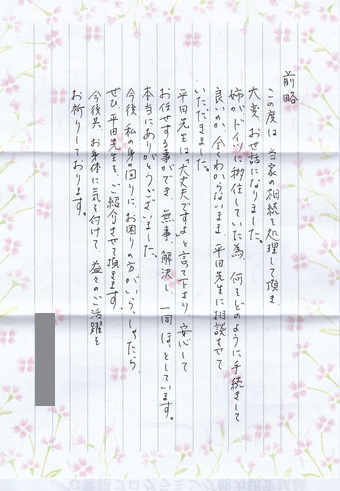 前略
この度は、当家の相続を処理して頂き、
大変、お世話になりました。
姉がドイツに移住していた為、何をどのように手続きして
良いのか、全くわからないまま、平田先生に相談させて
いただきました。
平田先生は「大丈夫ですよ」と言って下さり、安心して
お任せする事ができ、無事、解決し、一同ほっとしています。
本当にありがとうございました。
今後、私の身の回りに、お困りの方がいらっしゃったら、
ぜひ、平田先生を、ご紹介させて頂きます。
今後共、お身体に気を付けて、益々のご活躍を
お祈りしております。